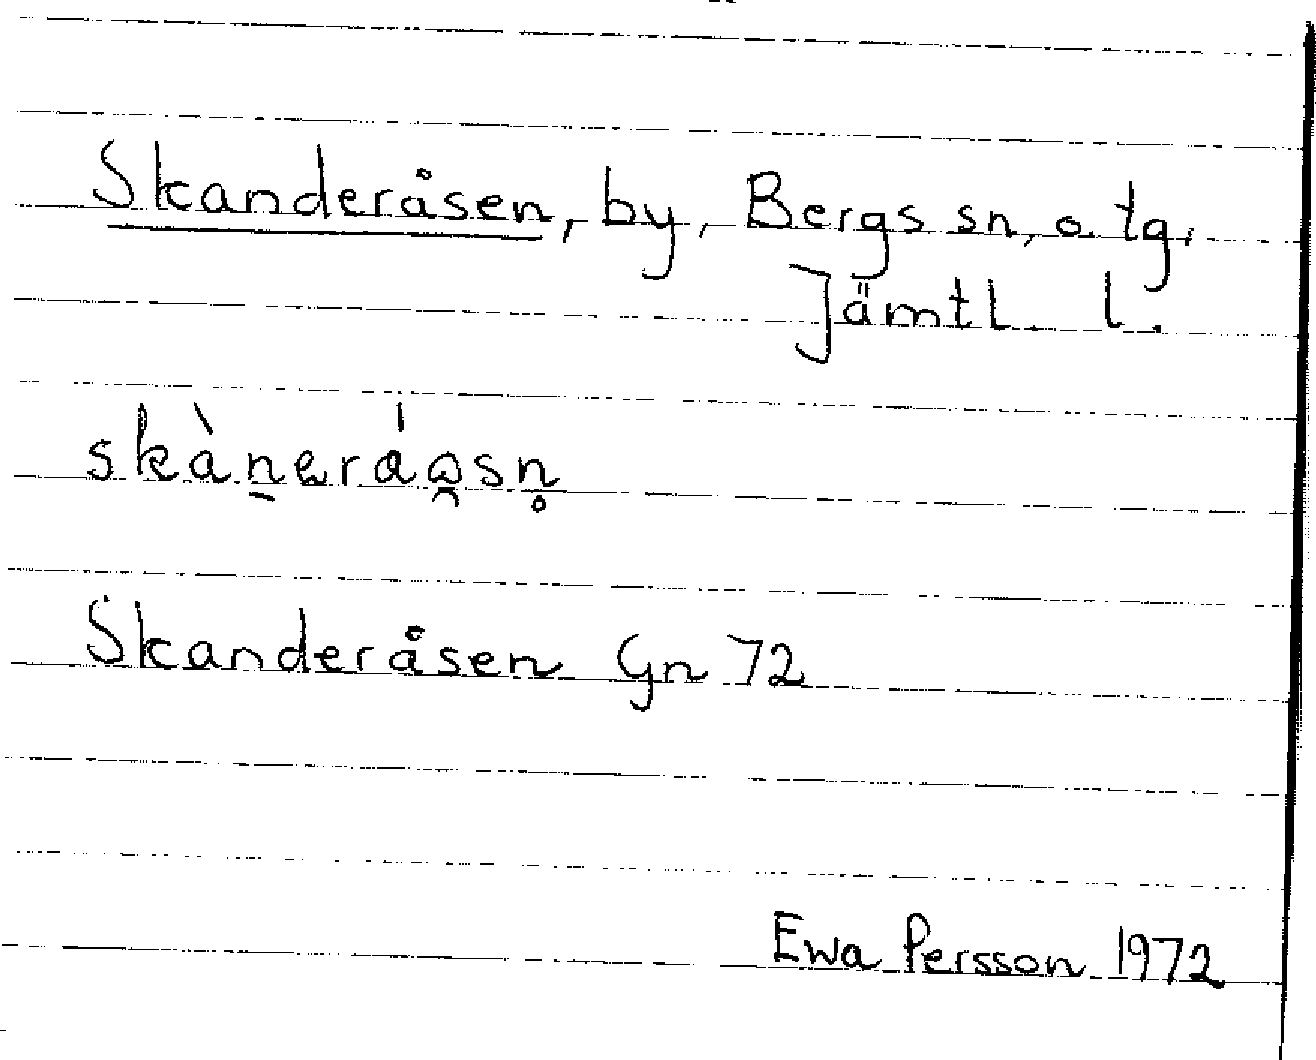 Skanderåsen, by, Bergs sn, o. tg,
Jämtl. l.
Skanderåsen Gn 72
Ewa Persson 1972